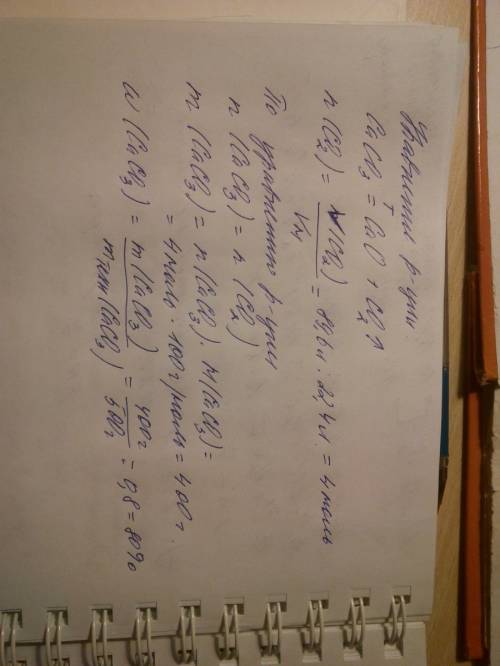 Уравнение р-ции:
CaCO₃ =ᵀ CaO + CO₂↑
n(CO₂) = V(CO₂)/Vм = 89,6л : 22,4л. = 4 моль
По уравнению р-ции
n(CaCO₃) = n(CO₂)
m(CaCO₃) = n(CaCO₃) · M(CaCO₃) =
= 4 моль · 100г/моль = 400г.
ω(CaCO₃) = m(CaCO₃)/m (CaCO₃) = 400г/500г = 0,8 = 80%